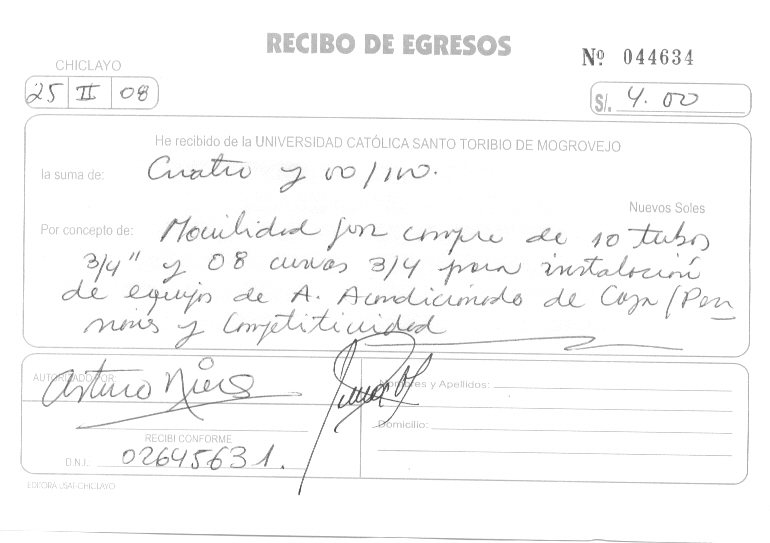 RECIBO DE EGRESOS
Nº 044634
CHICLAYO
25 II 08
S/. 4.00
He recibido de la UNIVERSIDAD CATÓLICA SANTO TORIBIO DE MOGROVEJO
la suma de: Cuatro y 00/100.
Nuevos Soles
Por concepto de: Movilidad por compra de 10 tubos
3/4" y 08 curvas 3/4 para instalación
de equipos de A. Acondicionado de Caja/Pen
siones y Competitividad
AUTORIZADO POR:
Arturo
Nombres y Apellidos:
Domicilio:
RECIBI CONFORME
D.N.I. 02645631.
EDITORA USAT-CHICLAYO